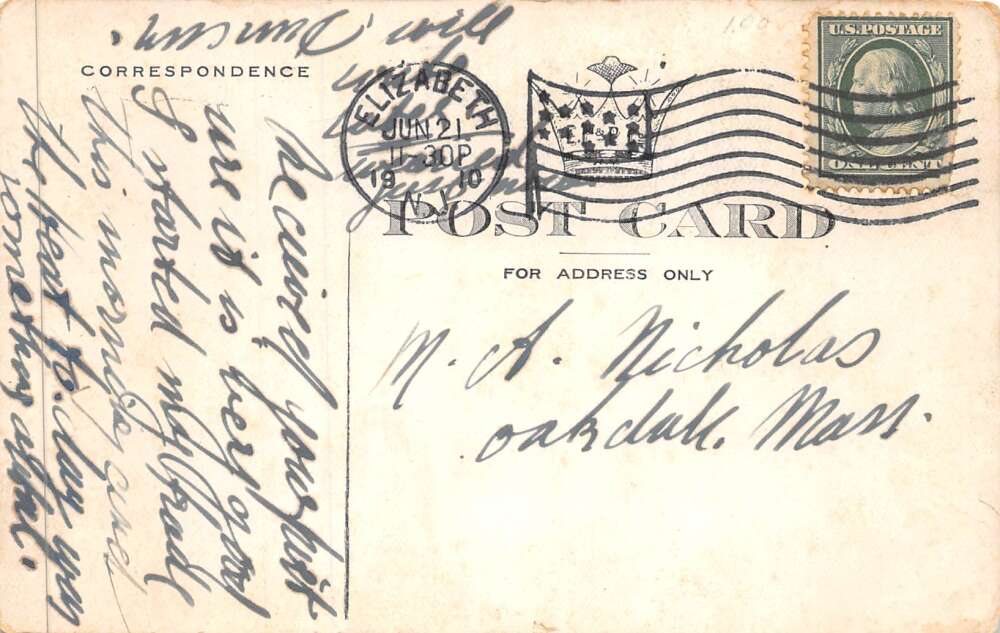 CORRESPONDENCE
Received your pict
ure it is very good
I started my trade
this morning and
the heat to day was
something awful.
will
Duncan.
ELIZABETH
JUN 21
11 30P
19 10
N.J.
U.S. POSTAGE
ONE CENT
1.00
POST CARD
FOR ADDRESS ONLY
M. A. Nicholas
Oakdale, Mass.